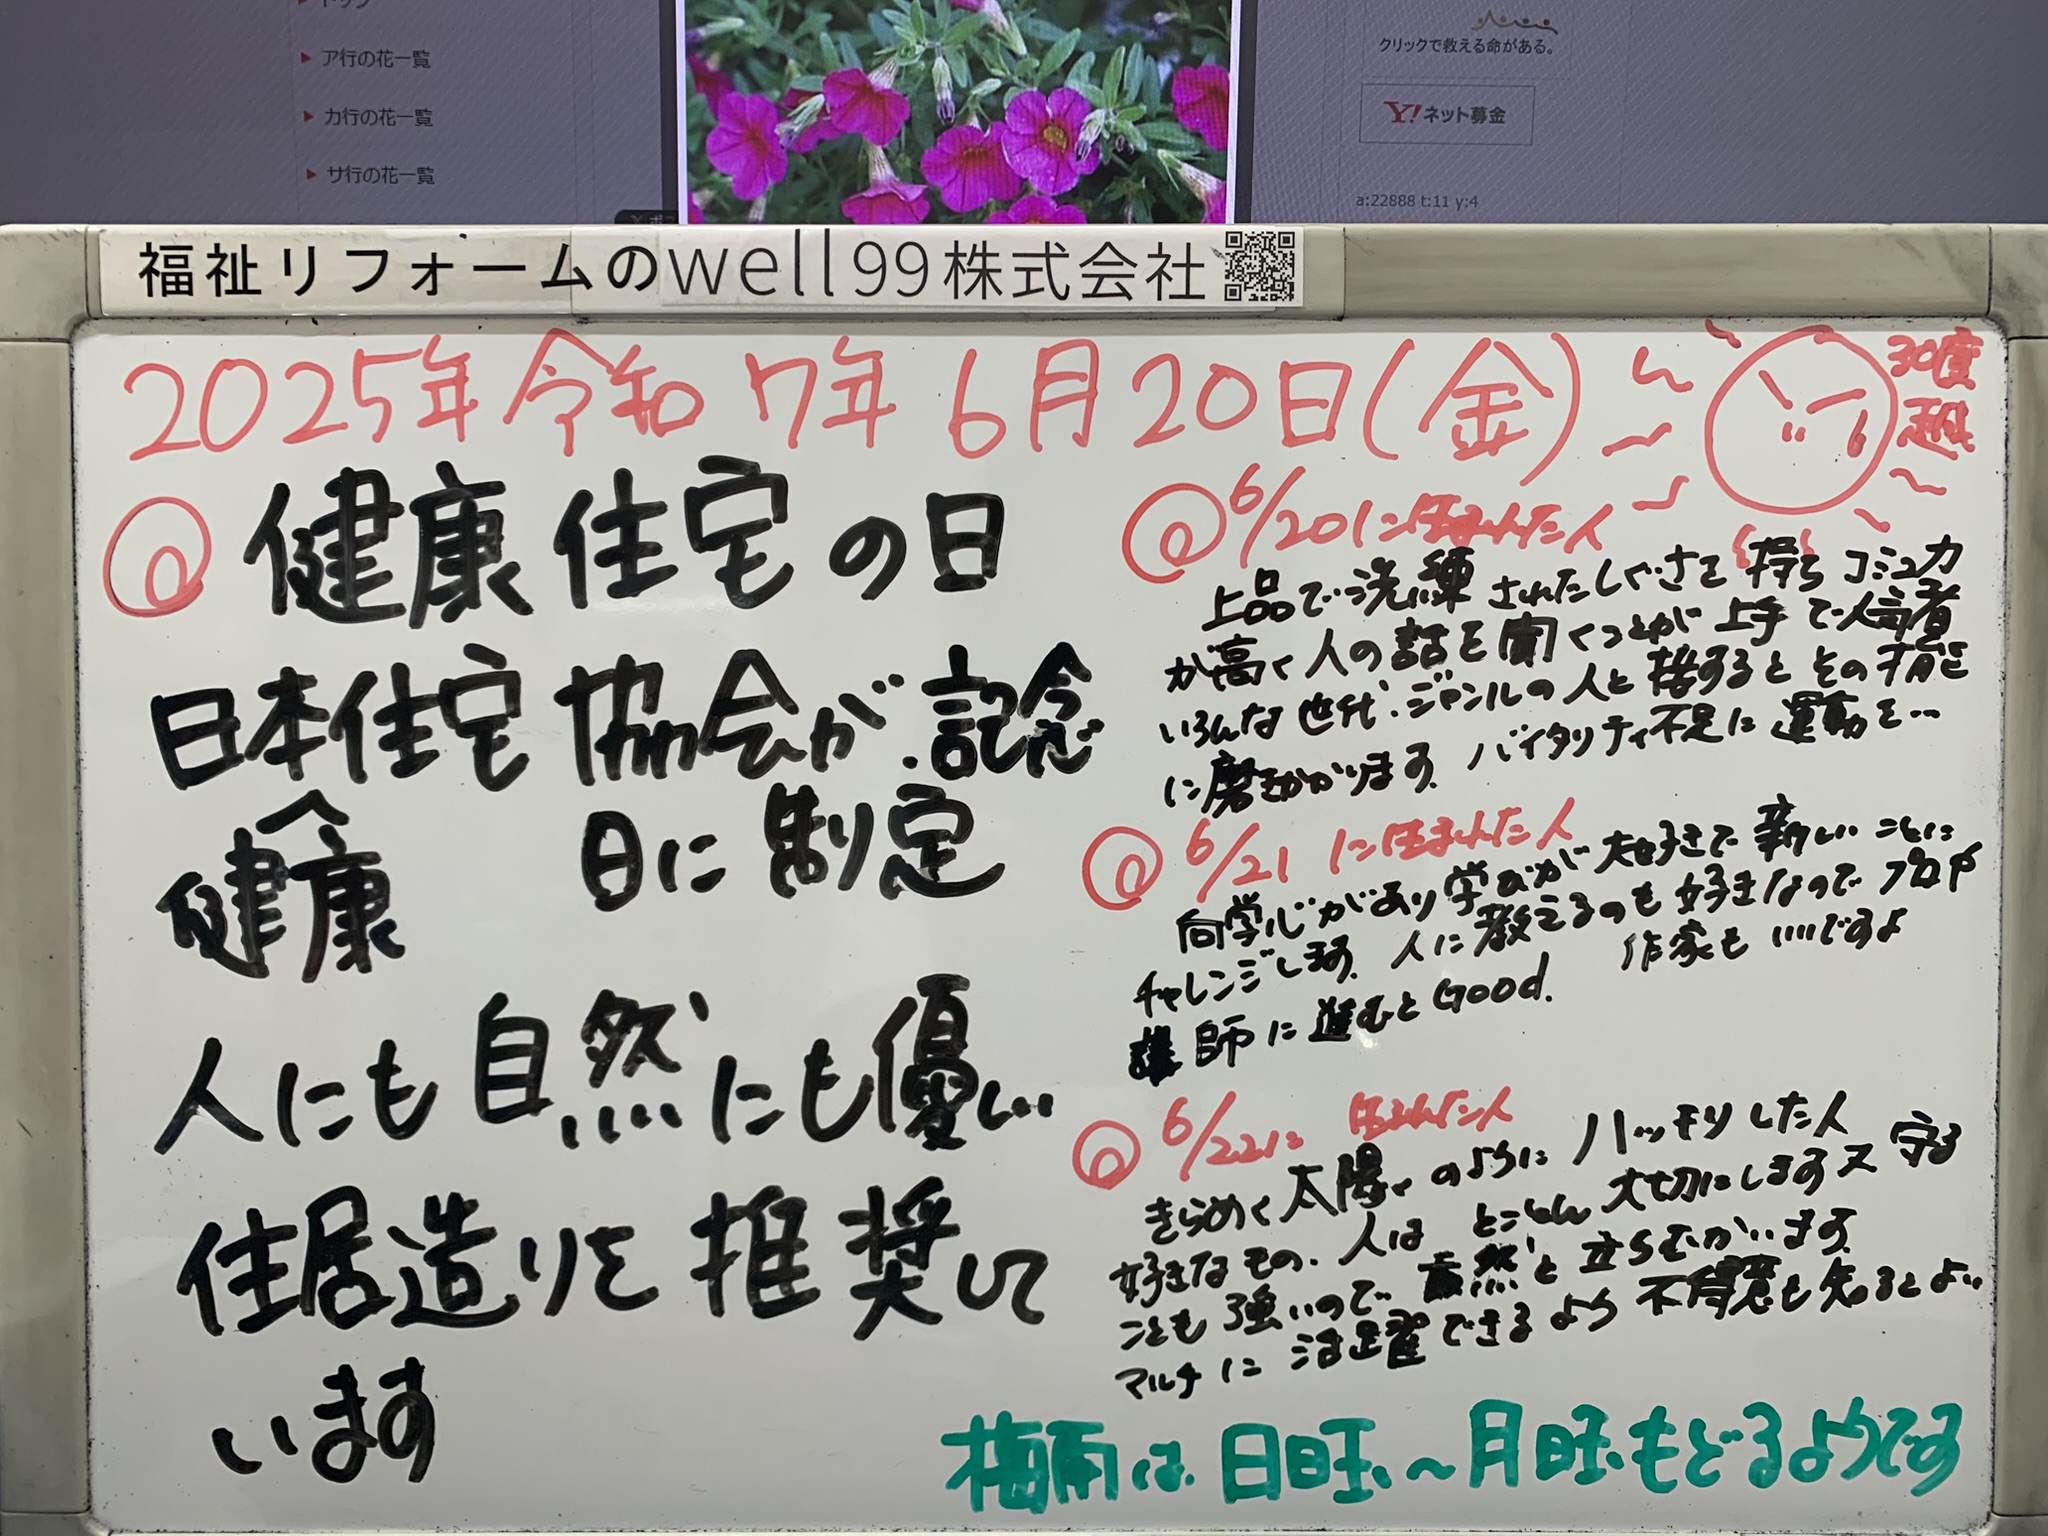 トップ
ア行の花一覧
カ行の花一覧
サ行の花一覧
クリックで救える命がある。
Y!ネット募金
a:22888 t:11 y:4
福祉リフォームのwell99株式会社
2025年令和7年6月20日(金)
30度
越
健康住宅の日
日本住宅協会が.記念
日に制定
健康
人にも自然にも優しい
住居造りを推奨して
います
6/20に生まれた人
上品で洗練されたしぐさを持ちコミュ力
が高く人の話を聞くことが上手で人気者
いろんな世代.ジャンルの人と接するとその才能
に磨きかかります.バイタリティ不足に運動を…
6/21に生まれた人
向学心があり学ぶが大好きで新しいことに
チャレンジします.人に教えるのも好きなのでプロや
講師に進むとGood.作家もいいですよ
6/22に生まれた人
きらめく太陽のようにハッキリした人
好きなもの.人はとことん大切にします又守る
ことも強いので 然と立ちむかいます.
マルチに活躍できるよう不得意も知るとよい
梅雨は日曜~月曜もどるようです